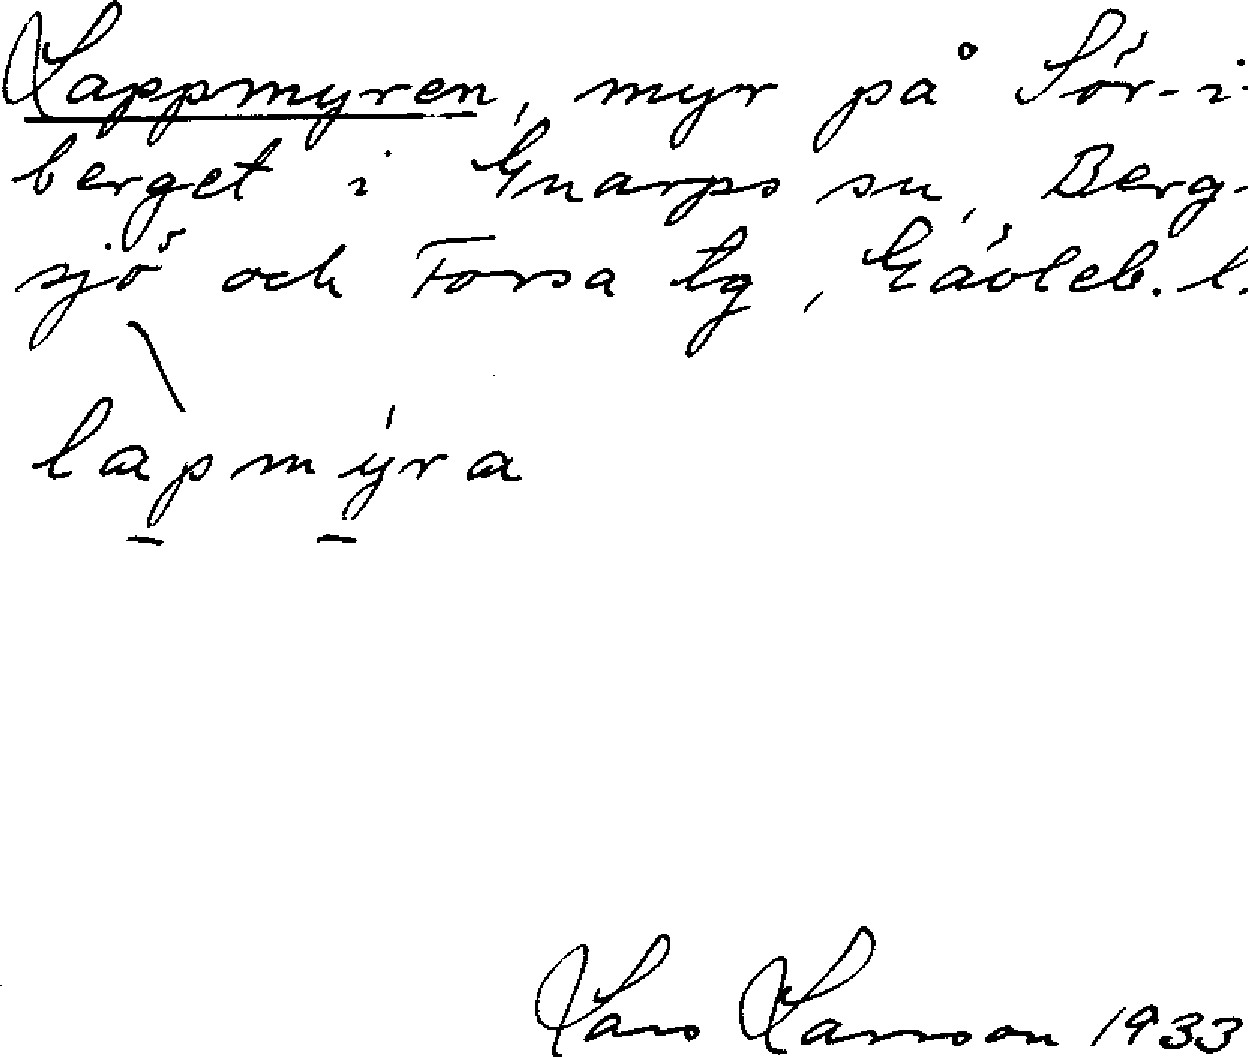 Lappmyren, myr på Sör-i-
berget i Gnarps sn, Berg-
sjö och Forsa tg, Gävleb. l.
lapmýra
Lars Larsson 1933